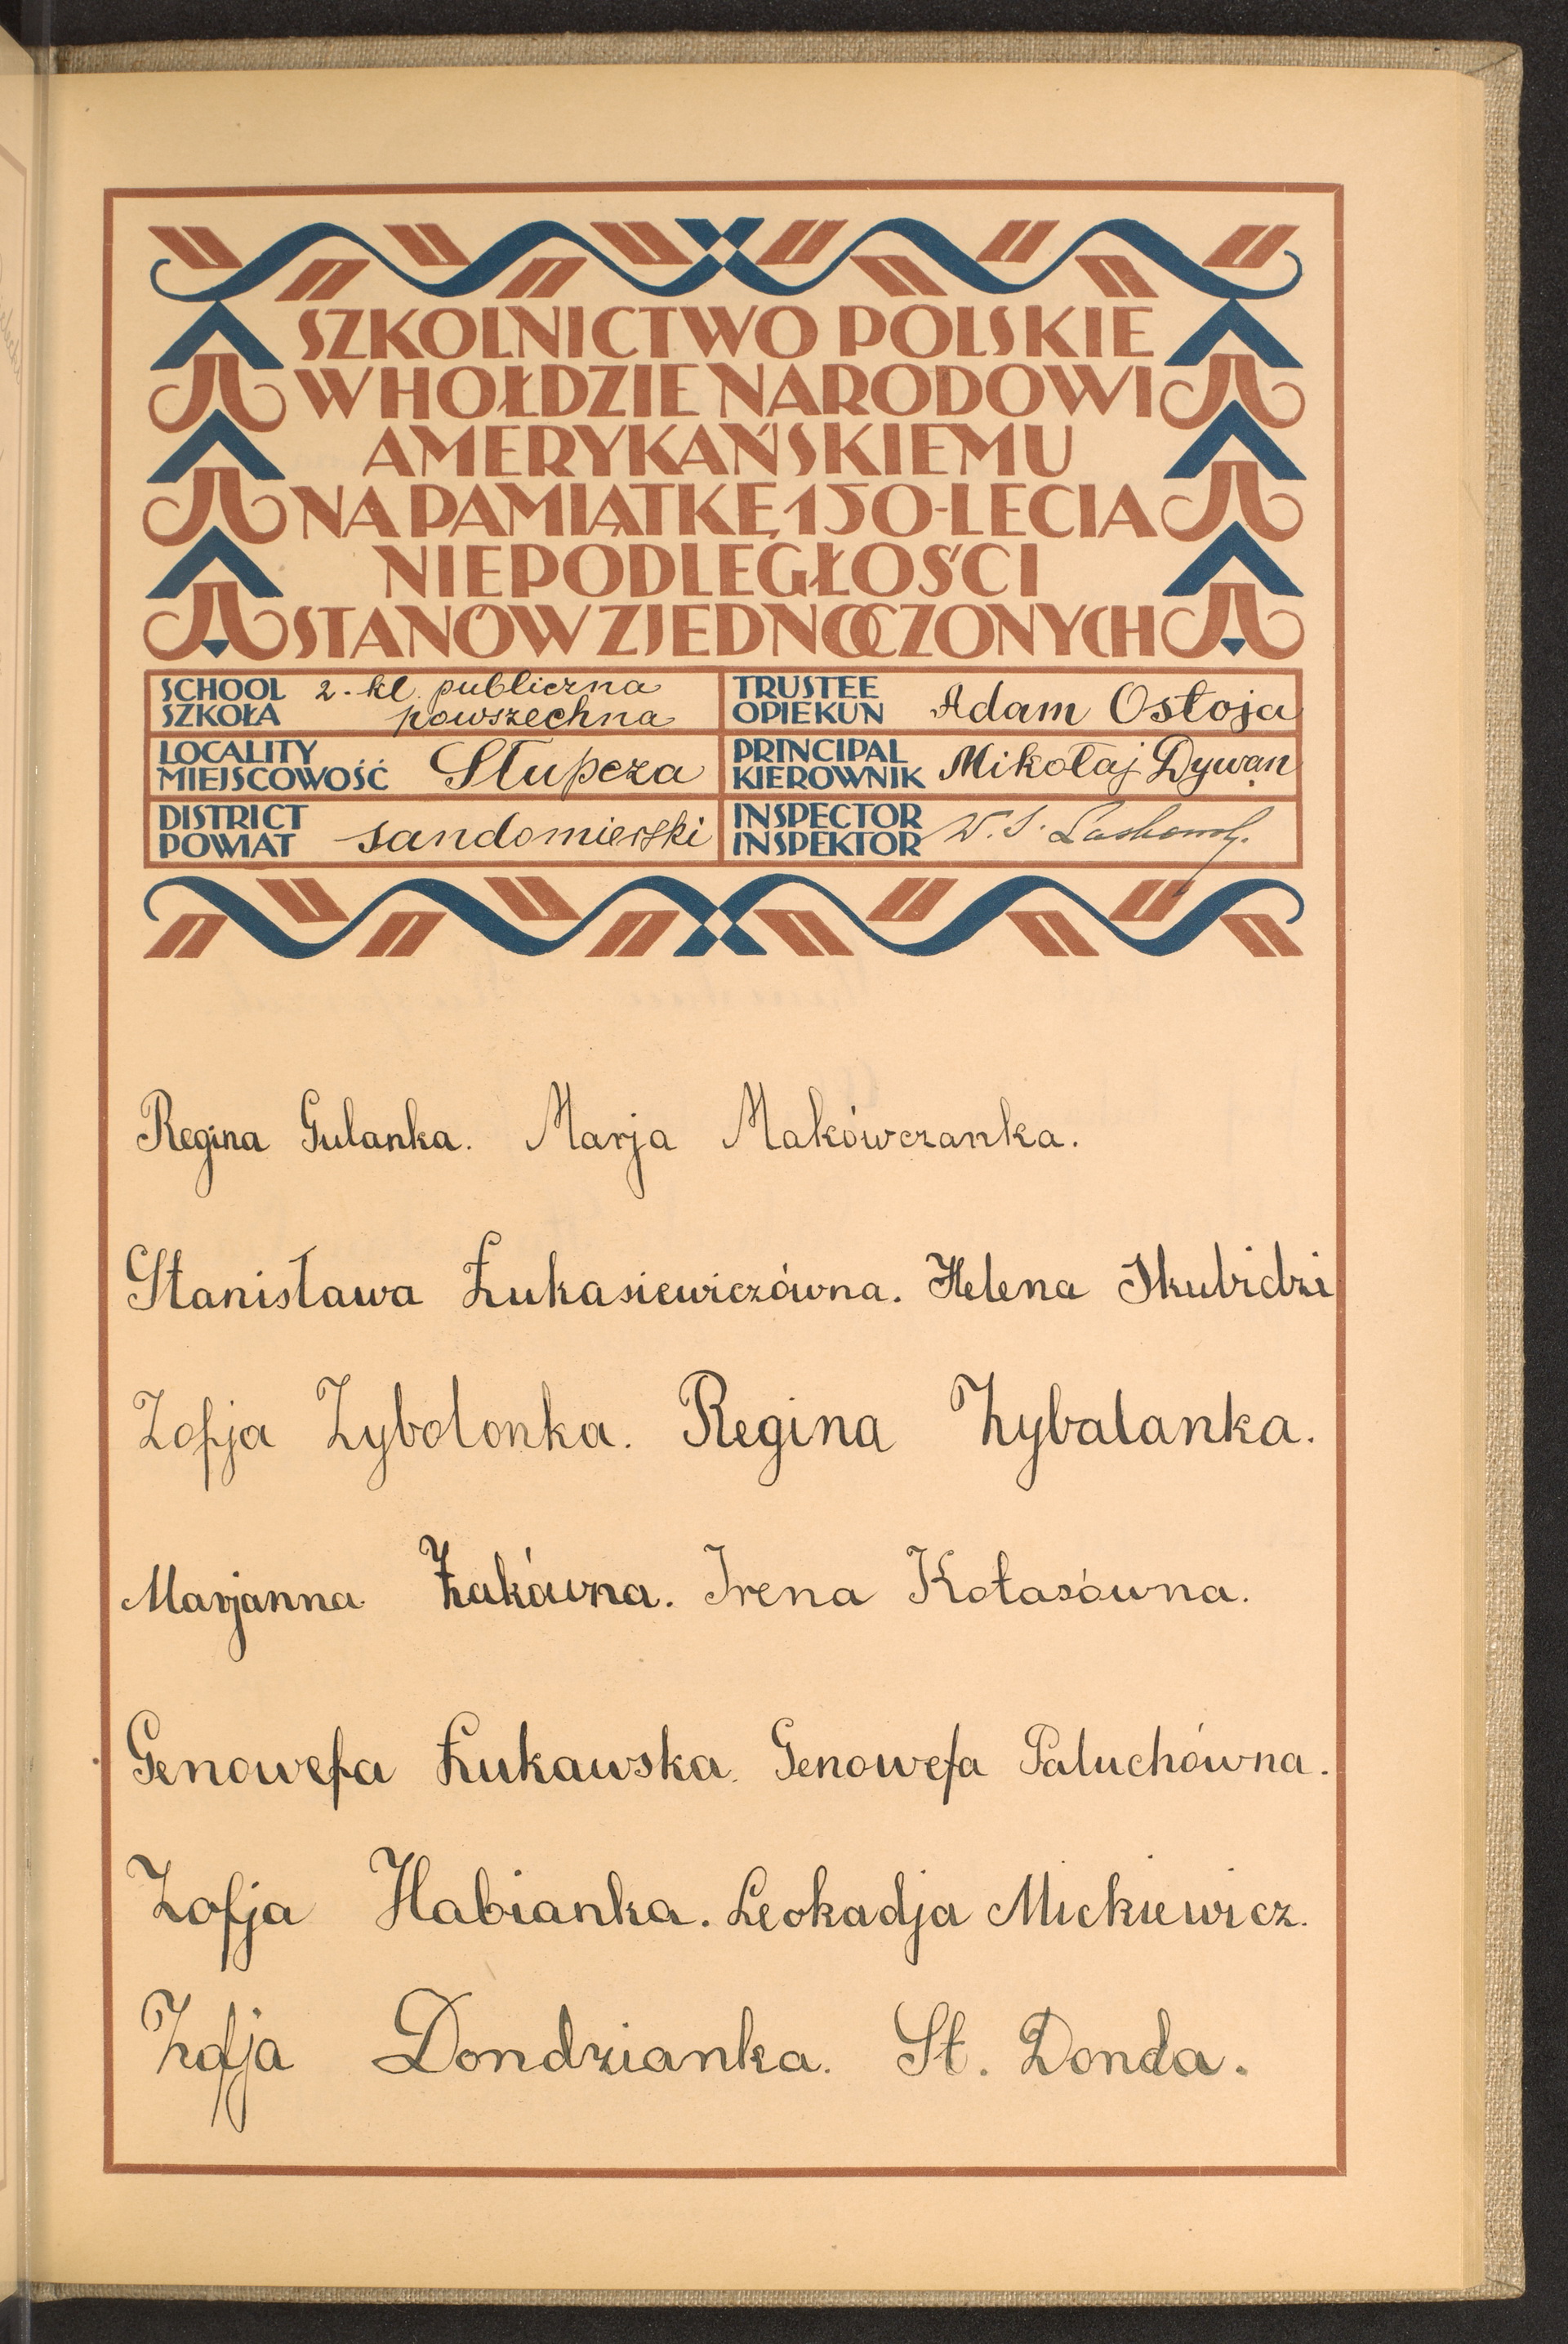 SZKOLNICTWO POLSKIE
W HOŁDZIE NARODOWI
AMERYKAŃSKIEMU
NA PAMIĄTKĘ 150-LECIA
NIEPODLEGŁOŚCI
STANÓW ZJEDNOCZONYCH
SCHOOL SZKOŁA 2-kl. publiczna powszechna
TRUSTEE OPIEKUN Adam Ostoja
LOCALITY MIEJSCOWOŚĆ Słupcza
PRINCIPAL KIEROWNIK Mikołaj Dywan
DISTRICT POWIAT sandomierski
INSPECTOR INSPEKTOR W. S.
Regina Gulanka. Marja Makówczanka.
Stanisława Łukasiewiczówna. Helena Skubidzi
Zofja Zybolonka. Regina Zybalanka.
Marjanna Żakówna. Irena Kołasówna.
Genowefa Łukawska. Genowefa Paluchówna.
Zofja Habianka. Leokadja Mickiewicz.
Zofja Dondzianka. St. Donda.